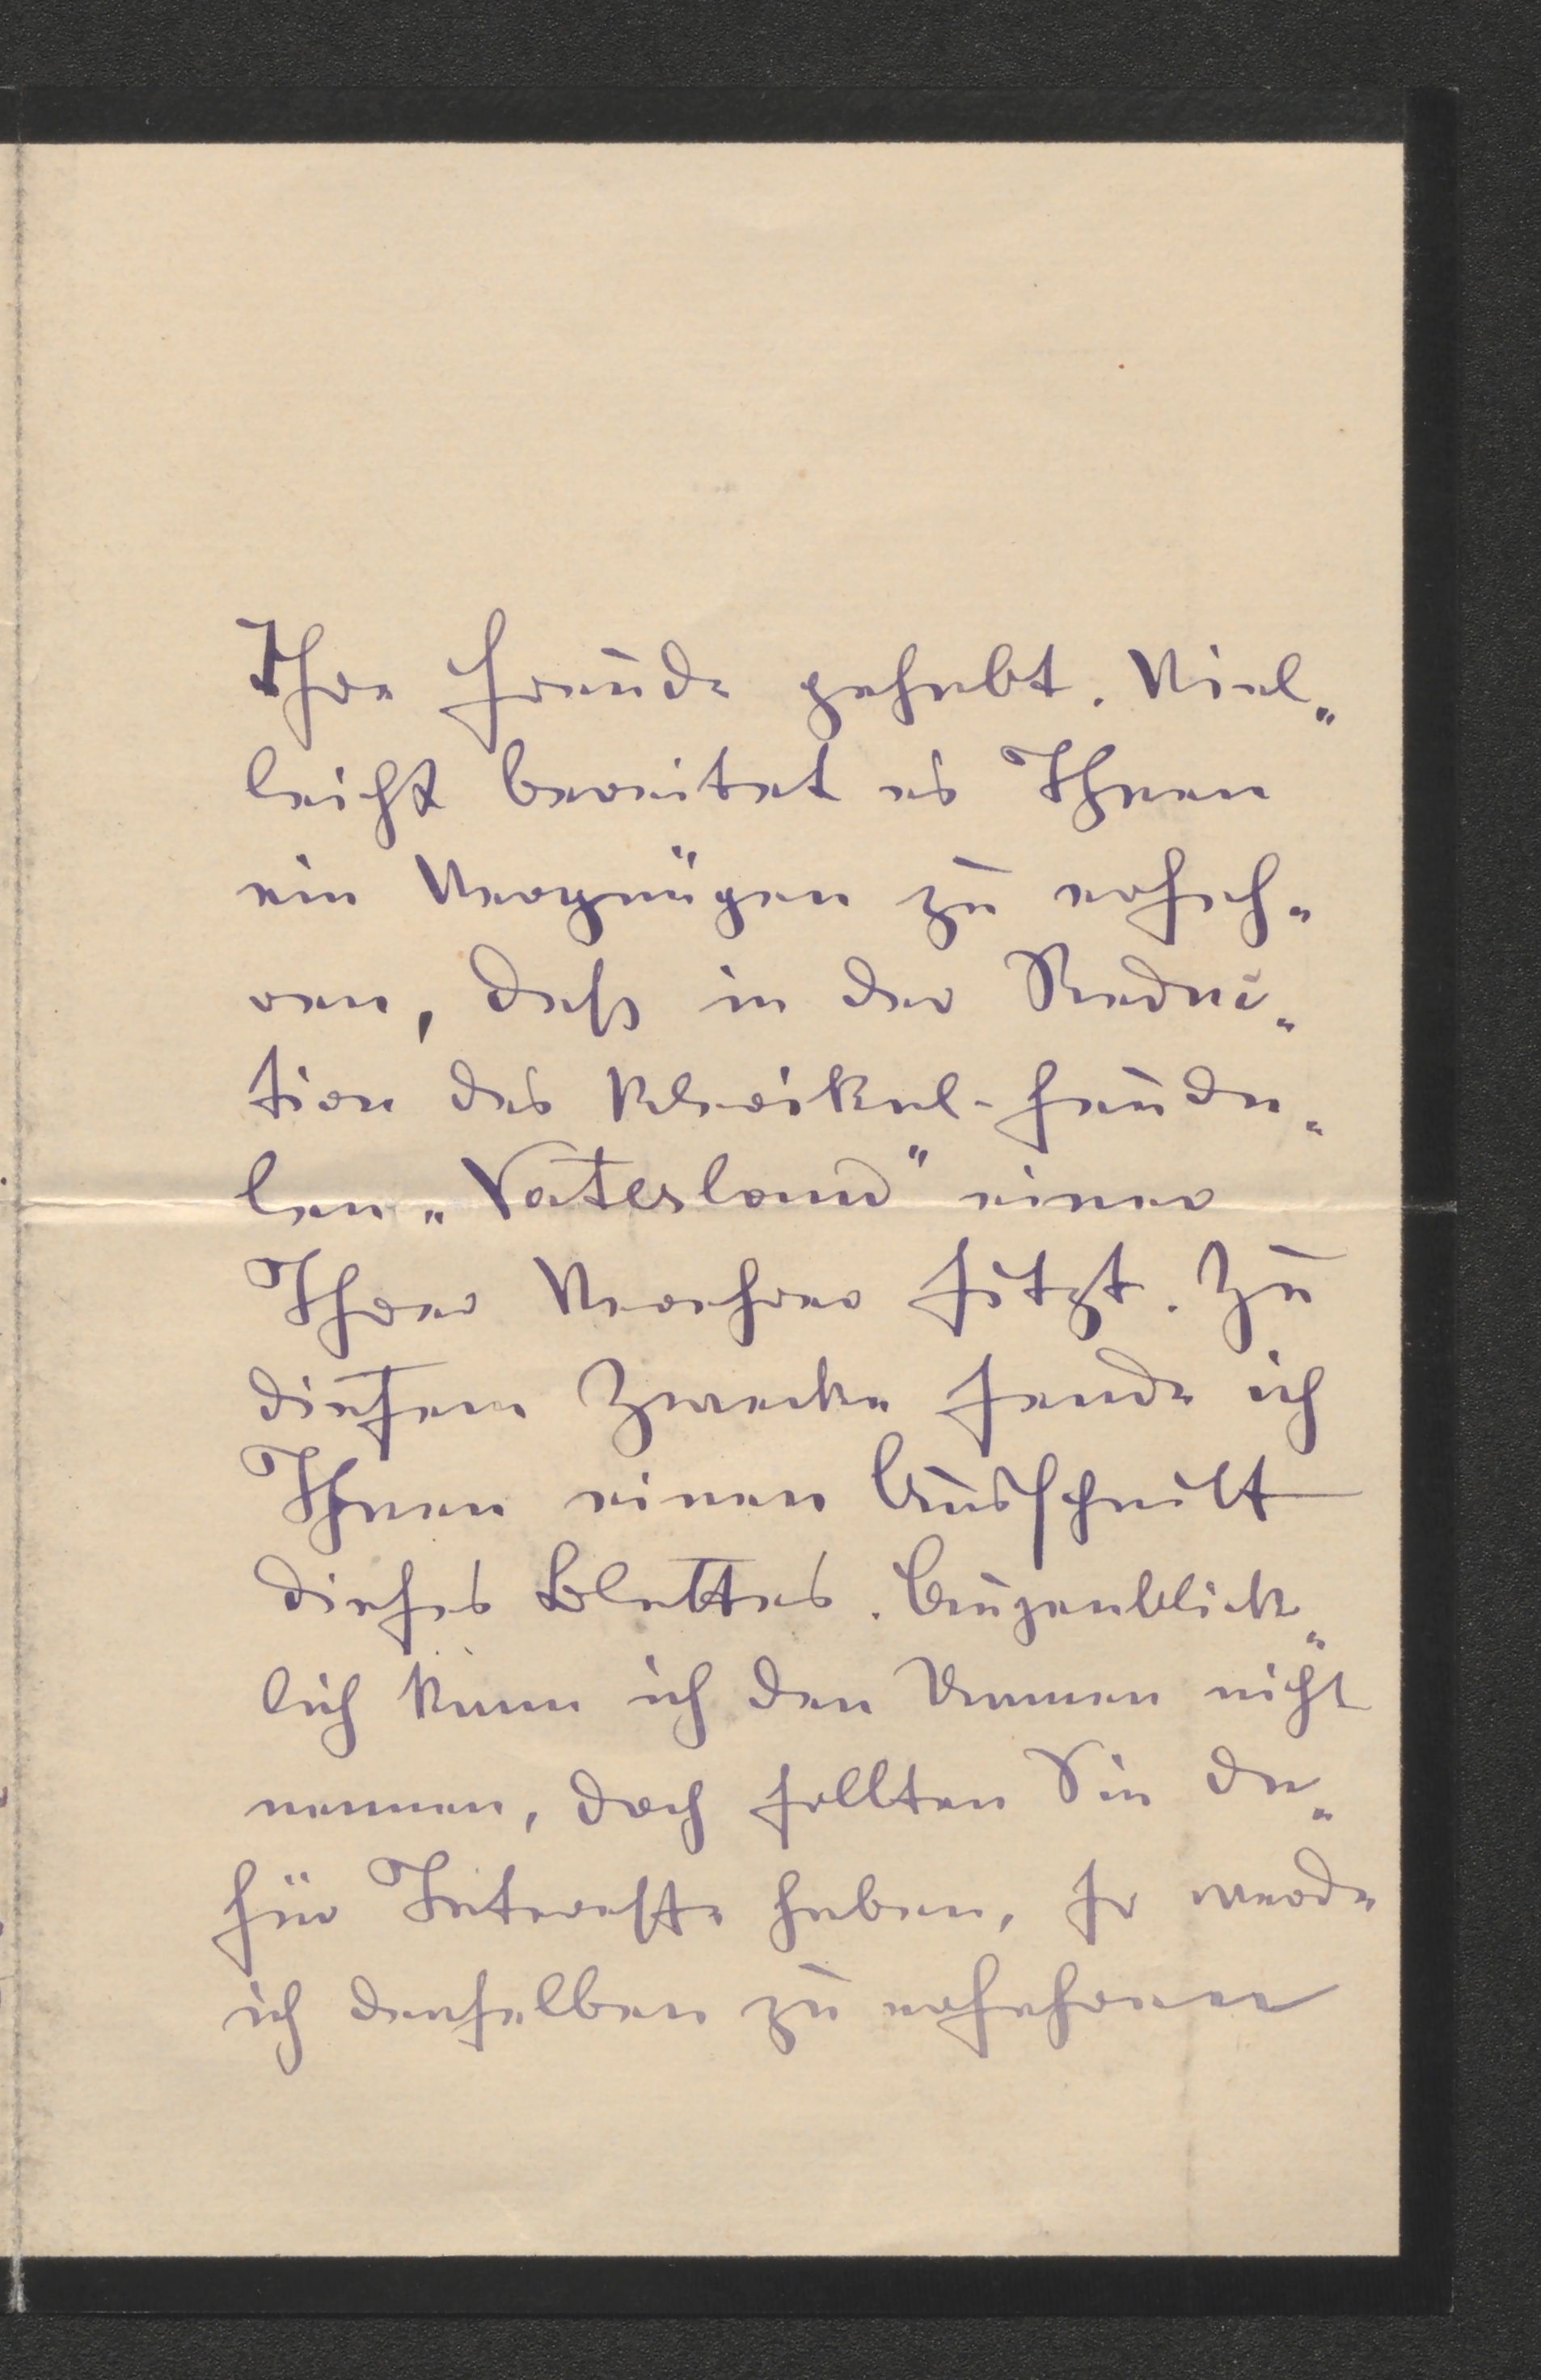 Ihre Freude gehabt. Viel„
leicht bereitet es Ihnen
ein Vergnügen zu erfah„
ren, daß in der Redac„
tion des klerikal-feuda„
len „Vaterland" einer
Ihrer Verehrer sitzt. Zu
diesem Zwecke sende ich
Ihnen einen Ausschnitt
dieses Blattes. Augenblick„
lich kann ich den Namen nicht
nennen, doch sollten Sie da„
für Interesse haben, so werde
ich denselben zu erfahren